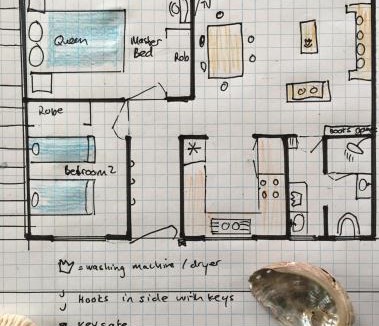 TV
Queen
Master
Bed
Rob
Robe
Bedroom 2
= washing machine / dryer
Hooks in side with keys
key safe